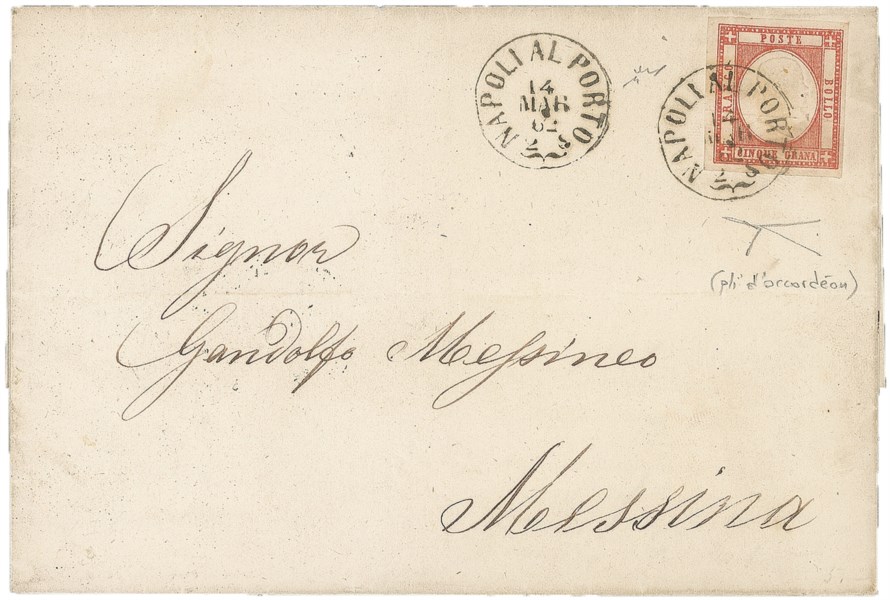 NAPOLI AL PORTO
14
MAR
62
2 S
POSTE
BOLLO
CINQUE GRANA
FRA
NAPOLI AL PORTO
MAR
2 S
(pli d'accordéon)
Signor
Gandolfo Messineo
Messina